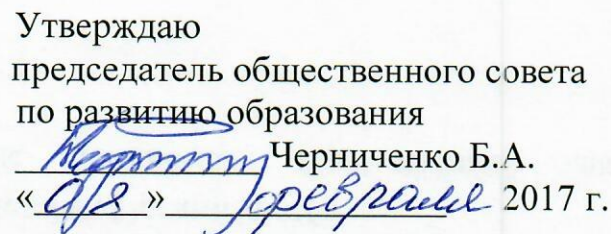 Утверждаю
председатель общественного совета
по развитию образования
Черниченко Б.А.
« » февраля 2017 г.